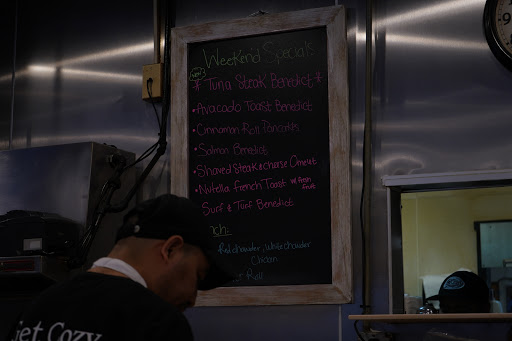 Weekend Specials
NEW
* Tuna Steak Benedict *
• Avacado Toast Benedict
• Cinnamon Roll Pancakes
• Salmon Benedict
• Shaved Steak & cheese Omelet
• Nutella French Toast w/ Fresh Fruit
Surf & Turf Benedict
Red chowder, White chowder
Chicken
Roll
iet Cozy